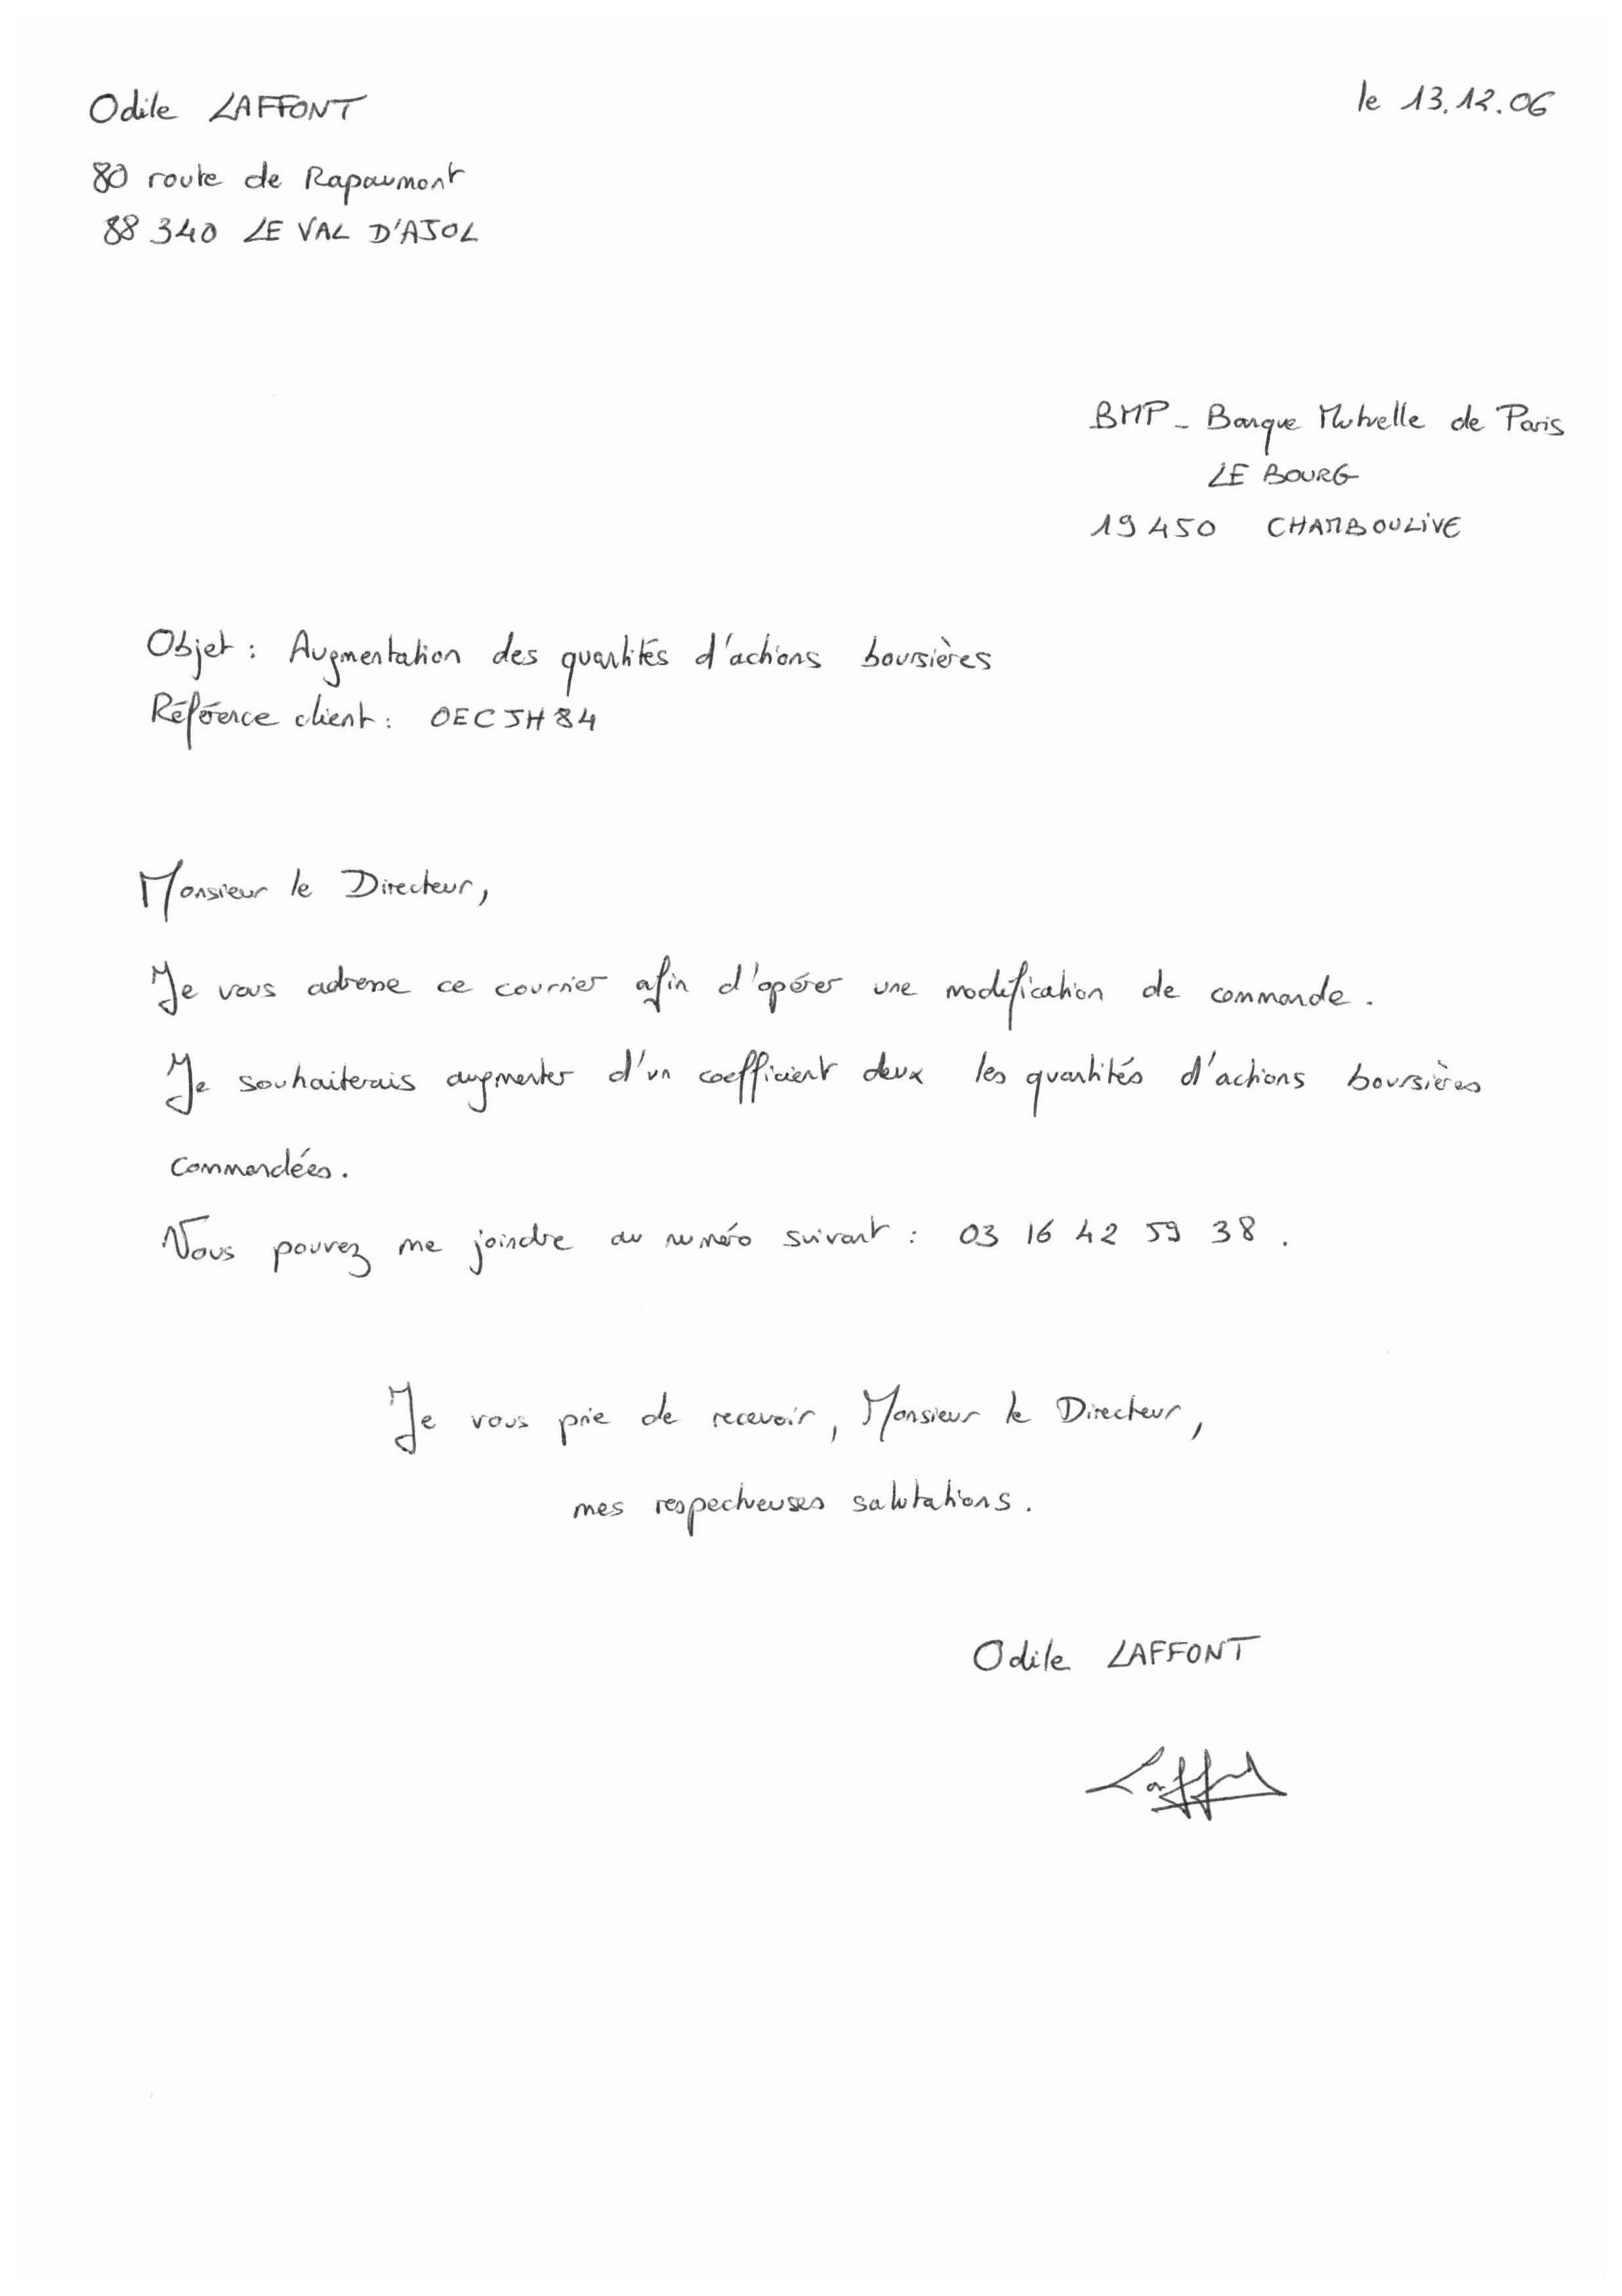 Odile LAFFONT
le 13.12.06
80 route de Rapaumont
88 340 LE VAL D'AJOL
BMP - Banque Mutuelle de Paris
LE BOURG
19 450 CHAMBOULIVE
Objet : Augmentation des quantités d'actions boursières
Référence client : OECJH84
Monsieur le Directeur,
Je vous adresse ce courrier afin d'opérer une modification de commande.
Je souhaiterais augmenter d'un coefficient deux les quantités d'actions boursières
commandées.
Vous pouvez me joindre au numéro suivant : 03 16 42 59 38.
Je vous prie de recevoir, Monsieur le Directeur,
mes respectueuses salutations.
Odile LAFFONT
Laffont